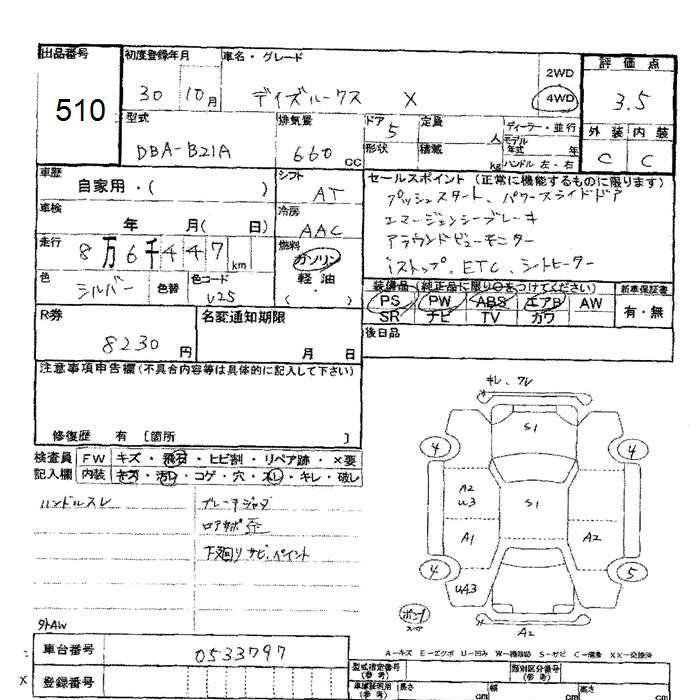 出品番号
510
初度登録年月
30 10月
車名・グレード
デイズルークス X
2WD
4WD
評価点
3.5
外装 内装
C C
型式
DBA-B21A
排気量
660 CC
ドア 5
形状
定員 人
積載 kg
ディーラー・並行
モデル年式 年
ハンドル 左・右
車歴
自家用・( )
シフト
AT
セールスポイント (正常に機能するものに限ります)
プッシュスタート、パワースライドドア
エマージェンシーブレーキ
アラウンドビューモニター
iストップ、ETC、シートヒーター
車検
年 月( 日)
冷房
AAC
走行
8万6千447km
燃料
ガソリン
軽油
( )
色
シルバー
色替
色コード
U25
装備品 (純正品に限り○をつけてください)
PS PW ABS エアB AW
SR ナビ TV カワ
新車保証書
有・無
R券
8230円
名変通知期限
月 日
後日品
注意事項申告欄(不具合内容等は具体的に記入して下さい)
修復歴 有 [箇所 ]
検査員 FW キズ・飛石・ヒビ割・リペア跡・×要
記入欄 内装 キズ・汚れ・コゲ・穴・スレ・キレ・破レ
ハンドルスレ
下廻りサビ、ペイント
キレ、ワレ
S1
4
4
A2
U3
S1
A1
A2
4
5
UA3
A2
外AW
A-キズ E-エクボ U-凹み
車台番号
0533797
登録番号
型式指定番号
(参考)
類別区分番号
(参考)
長さ cm
幅 cm
高さ cm